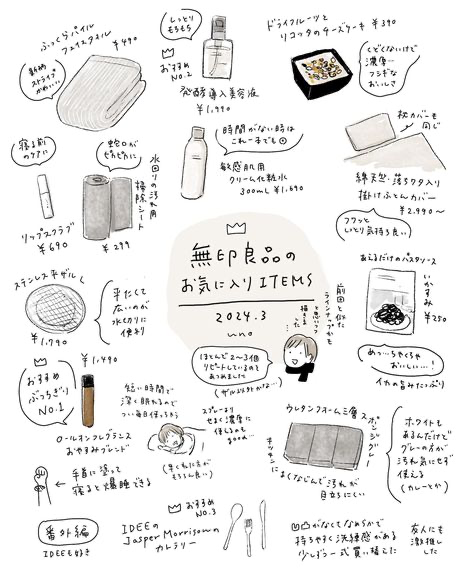 ふっくらパイル
フェイスタオル
¥490
新柄
ストライプ
かわいい
しっとり
もちもち
おすすめ
NO.2
発酵導入美容液
¥1,990
ドライフルーツと
リコッタのチーズケーキ ¥390
くどくないけど
濃厚…
フシギな
おいしさ
寝る前
のケアに
リップスクラブ
¥690
蛇口が
ぴかぴかに
水回りの汚れ用
掃除シート
¥299
時間がない時は
これ一本でも◎
敏感肌用
クリーム化粧水
300ml ¥1,690
枕カバーも
同じ
綿天竺・落ちワタ入り
掛けふとんカバー
¥2,990〜
フワッと
しっとり気持ち良い
無印良品の
お気に入りITEMS
2024.3
uno
ステンレス平ザル
¥1,790
平たくて
広いのが
水切りに
便利
前回と似た
ラインナップかも
と思いつつ
描きま
った
ほとんど2〜3個
リピートしているもの
あつめました
(ザル以外かな…)
あえるだけのパスタソース
いかすみ
¥250
めっ…ちゃくちゃ
おいしい…!
イカの旨みたっぷり
¥1,490
おすすめ
ぶっちぎり
NO.1
ロールオンフレグランス
おやすみブレンド
短い時間で
深く眠れるので
つい毎日使っちゃう
スプレーより
せまく濃厚に
使えるも
good…
(早く寝た方が
もちろん良い)
手首に塗って
寝ると爆睡できる
ウレタンフォーム三層スポンジグレー
キッチンに
なじんで汚れが
目立ちにくい
ホワイトも
あるんだけど
グレーの方が
汚れ気にせず
使える
(カレーとか)
番外編
IDEEも好き
IDEEの
Jasper Morrisonの
カトラリー
おすすめ
NO.3
がなくてなめらかで
持ちやすく洗練感がある
少しずつ一式買い替えた
友人にも
激推し
した